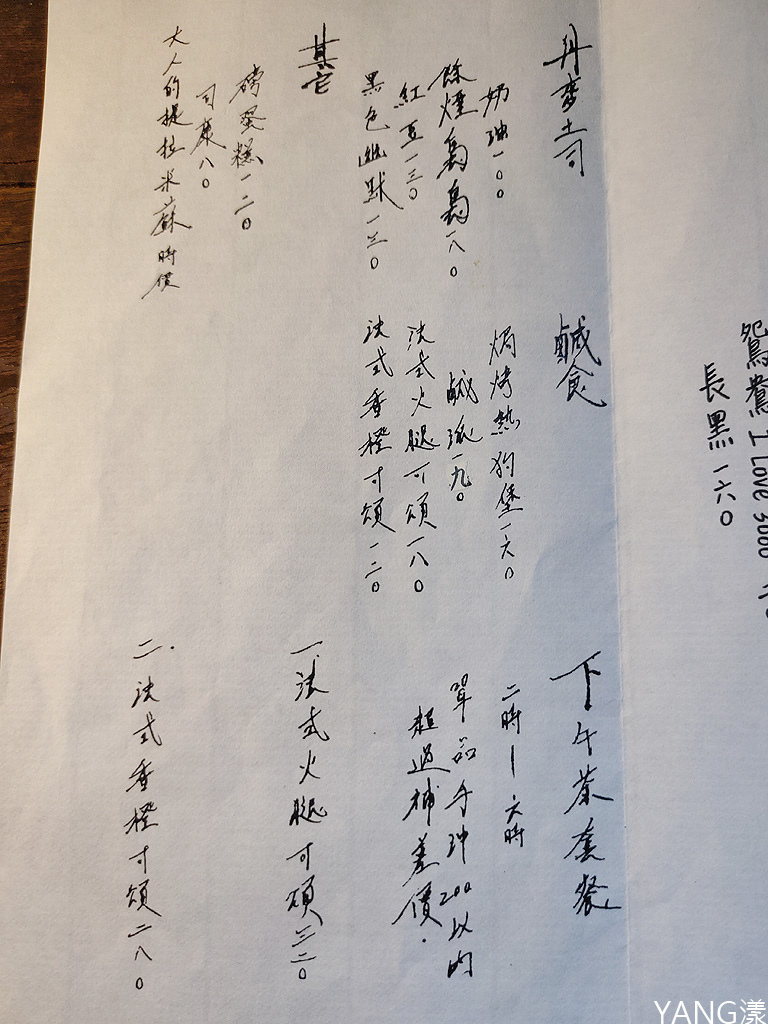 鴛鴦 I Love
長黑一六〇
丹麥土司
奶油一〇〇
餘煙裊裊一八〇
紅豆一三〇
黑色幽默一三〇
其它
磅蛋糕一二〇
司康八〇
大人的提拉米蘇時價
鹹食
焗烤熱狗堡一六〇
鹹派一九〇
法式火腿可頌一八〇
法式香橙可頌一二〇
下午茶套餐
二時—六時
單品手沖200以內
超過補差價.
一.法式火腿可頌三二〇
二.法式香橙可頌二八〇
YANG漾